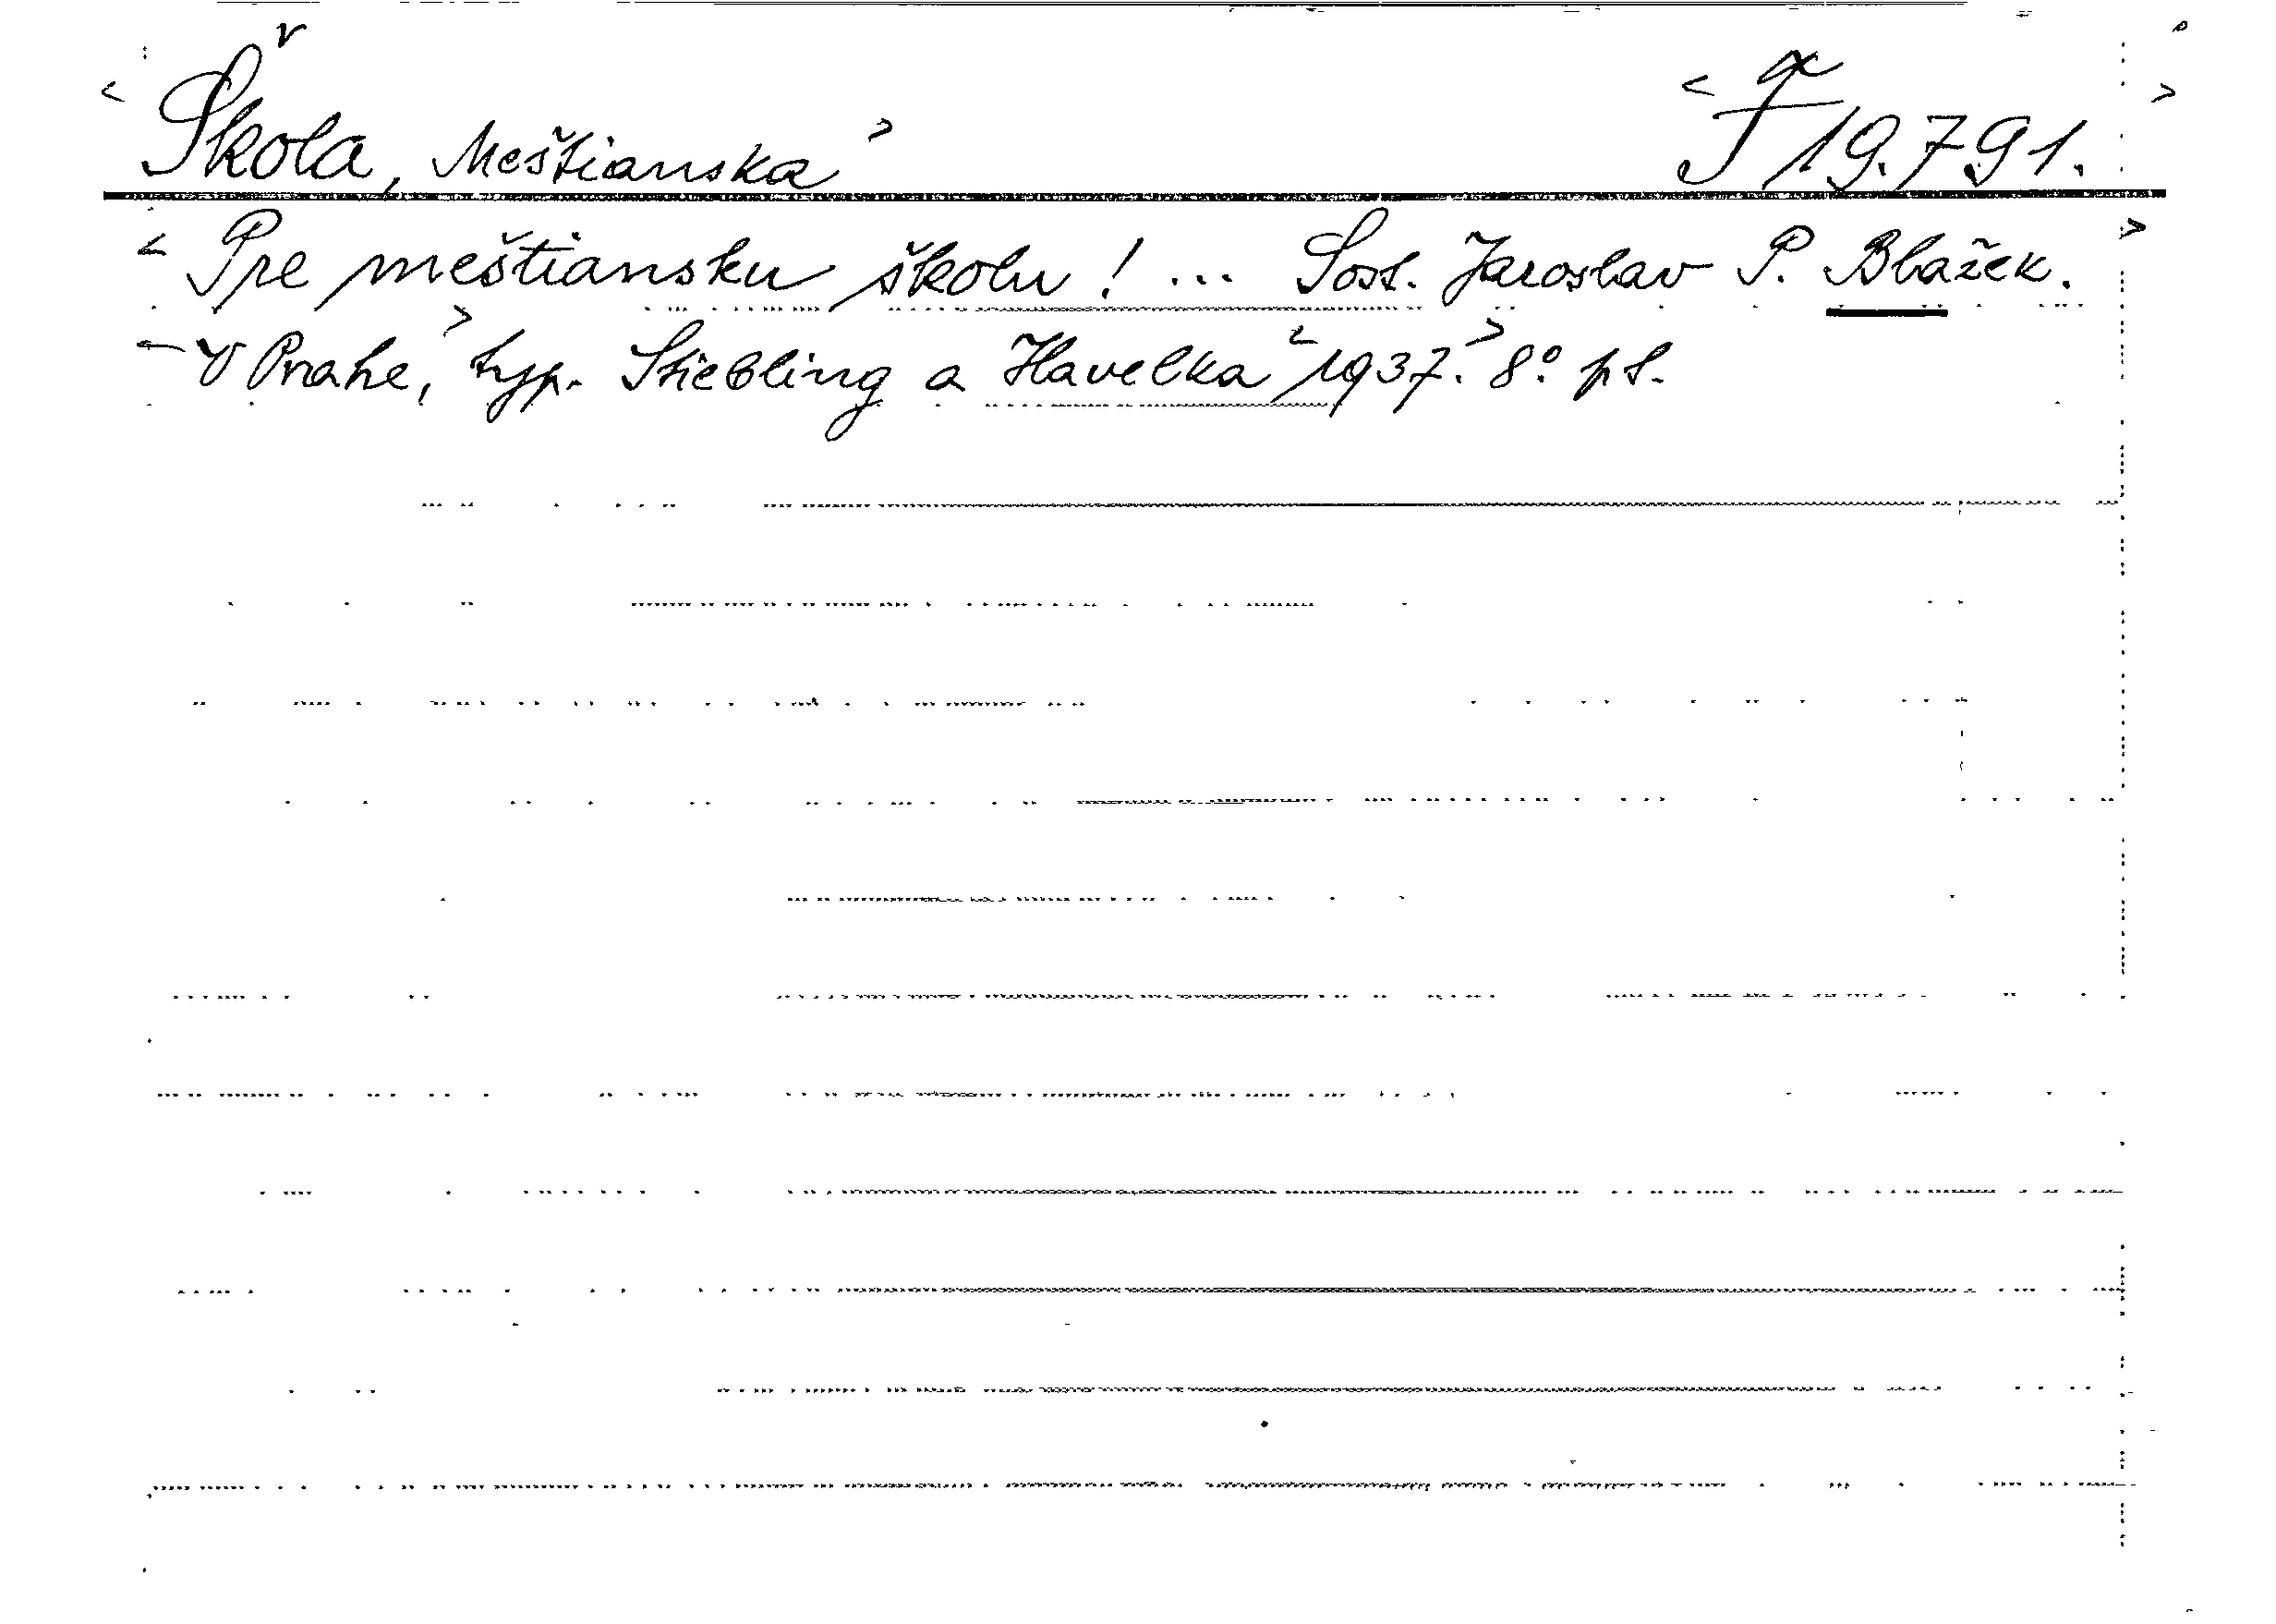 < Škola, Meštianska > < F 19.791. >
< Pre meštiansku školu! ... Sost. Jaroslav P. Blažek. >
< V Prahe, > typ. Stiebling a Havelka < 1937. > 8°. pl.